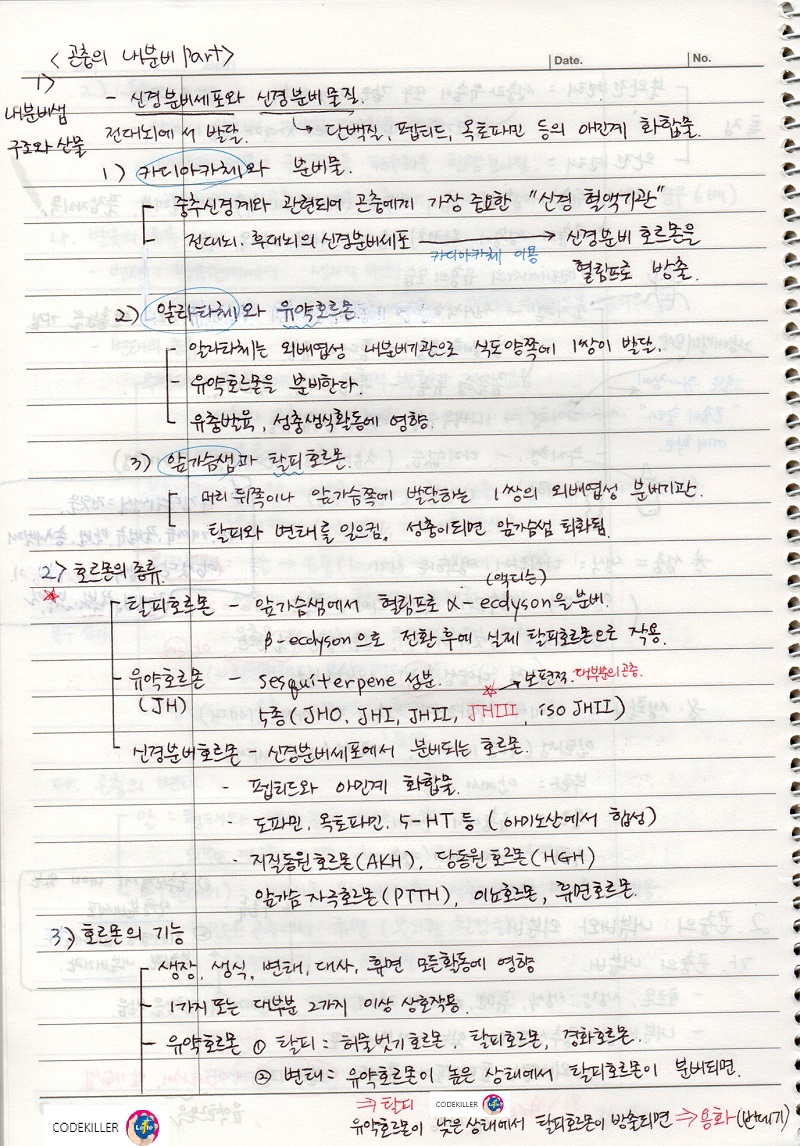 <곤충의 내분비 Part>
Date.
No.
1>
내분비샘
구조와 산물
- 신경분비세포와 신경분비물질.
전대뇌에서 발달. ↳ 단백질, 펩티드, 옥토파민 등의 아민계 화합물.
1) 카디아카체와 분비물.
중추신경계와 관련되어 곤충에게 가장 중요한 "신경 혈액기관"
전대뇌, 후대뇌의 신경분비세포 → 신경분비 호르몬을
카디아카체 이용
혈림프로 방출.
2) 알라타체와 유약호르몬.
알라타체는 외배엽성 내분비기관으로 식도양쪽에 1쌍이 발달.
유약호르몬을 분비한다.
유충발육, 성충생식활동에 영향.
3) 앞가슴샘과 탈피호르몬.
머리 뒤쪽이나 앞가슴쪽에 발달하는 1쌍의 외배엽성 분비기관.
탈피와 변태를 일으킴, 성충이되면 앞가슴샘 퇴화됨.
2> 호르몬의 종류.
(엑디손)
탈피호르몬 - 앞가슴샘에서 혈림프로 α-ecdyson을 분비.
β-ecdyson으로 전환 후에 실제 탈피호르몬으로 작용.
유약호르몬 - sesquiterpene 성분. → 보편적. 대부분의 곤충.
(JH) 5종(JH0, JHI, JHII, JHIII, iso JHII)
신경분비호르몬 - 신경분비세포에서 분비되는 호르몬.
- 펩티드와 아민계 화합물.
- 도파민, 옥토파민, 5-HT 등 (아미노산에서 합성)
- 지질동원호르몬(AKH), 당동원호르몬(HGH)
앞가슴자극호르몬(PTTH), 이뇨호르몬, 휴면호르몬.
3> 호르몬의 기능
생장, 생식, 변태, 대사, 휴면 모든활동에 영향
1가지 또는 대부분 2가지 이상 상호작용.
유약호르몬 ① 탈피 : 허물벗기호르몬, 탈피호르몬, 경화호르몬.
② 변태 : 유약호르몬이 높은 상태에서 탈피호르몬이 분비되면.
⇒ 탈피
유약호르몬이 낮은상태에서 탈피호르몬이 방출되면 ⇒ 용화 (번데기)
CODEKILLER
CODEKILLER